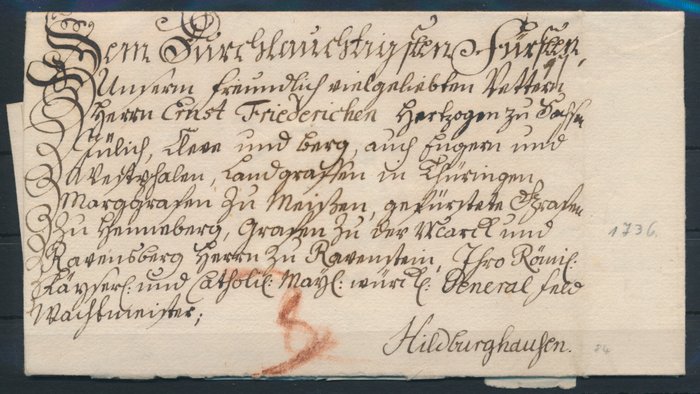 Dem Durchlauchtigsten Fürsten,
Unserm freundlich vielgeliebten Vettern,
Herrn Ernst Friederichen Hertzogen zu Sachsen
Jülich, Cleve und Berg, auch Engern und
Westphalen, Landgraffen in Thüringen,
Marggrafen zu Meißen, gefürstete Grafen
zu Henneberg, Grafen zu der Marck und
Ravensberg Herrn zu Ravenstein, Ihro Römil:
Käyserl: und Catholil: Mayl: würckl: General feld
Wachtmeister;
Hildburghausen.
1736.
24